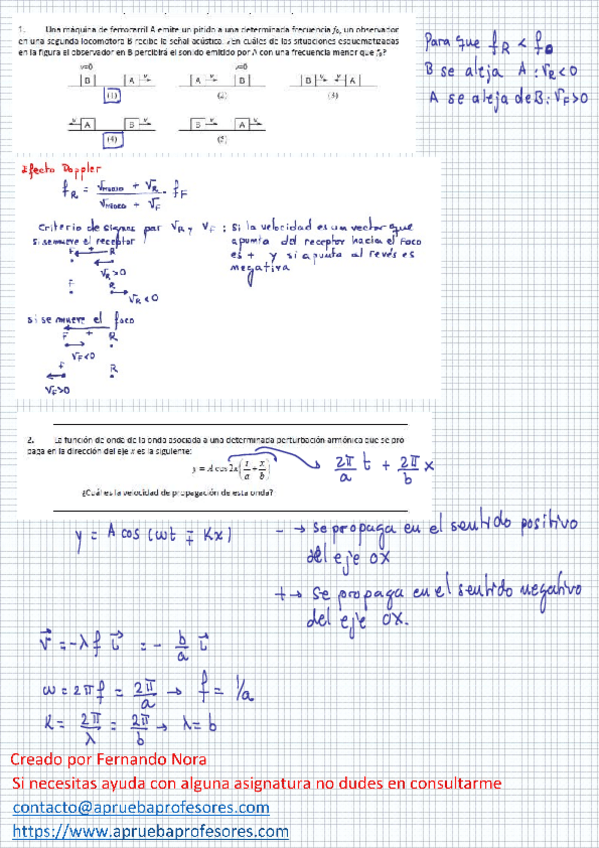 1. Una máquina de ferrocarril A emite un pitido a una determinada frecuencia f₀, un observador
en una segunda locomotora B recibe la señal acústica. ¿En cuáles de las situaciones esquematizadas
en la figura el observador en B percibirá el sonido emitido por A con una frecuencia menor que f₀?
Para que fR < f₀
B se aleja A : vR<0
A se aleja de B : vF>0
v=0 v=0
B A v A B B A v
(1) (2) (3)
v A B v A B
(4) (5)
Efecto Doppler
fR = (vmedio + vR)/(vmedio + vF) · fF
Criterio de signos par vR y vF : Si la velocidad es un vector que
apunta del receptor hacia el foco
es + y si apunta al revés es
negativa
Si se mueve el receptor
F + R
vR>0
F R
vR<0
Si se mueve el foco
F + R
vF<0
F R
vF>0
2. La función de onda de la onda asociada a una determinada perturbación armónica que se pro
paga en la dirección del eje x es la siguiente:
y = A cos 2π(t/a + x/b)
2π/a t + 2π/b x
¿Cuál es la velocidad de propagación de esta onda?
y = A cos (wt ∓ Kx)
- → Se propaga en el sentido positivo
del eje OX
+ → Se propaga en el sentido negativo
del eje OX.
v = -λ f i = - b/a i
w = 2πf = 2π/a → f = 1/a
K = 2π/λ = 2π/b → λ = b
Creado por Fernando Nora
Si necesitas ayuda con alguna asignatura no dudes en consultarme
contacto@apruebaprofesores.com
https://www.apruebaprofesores.com